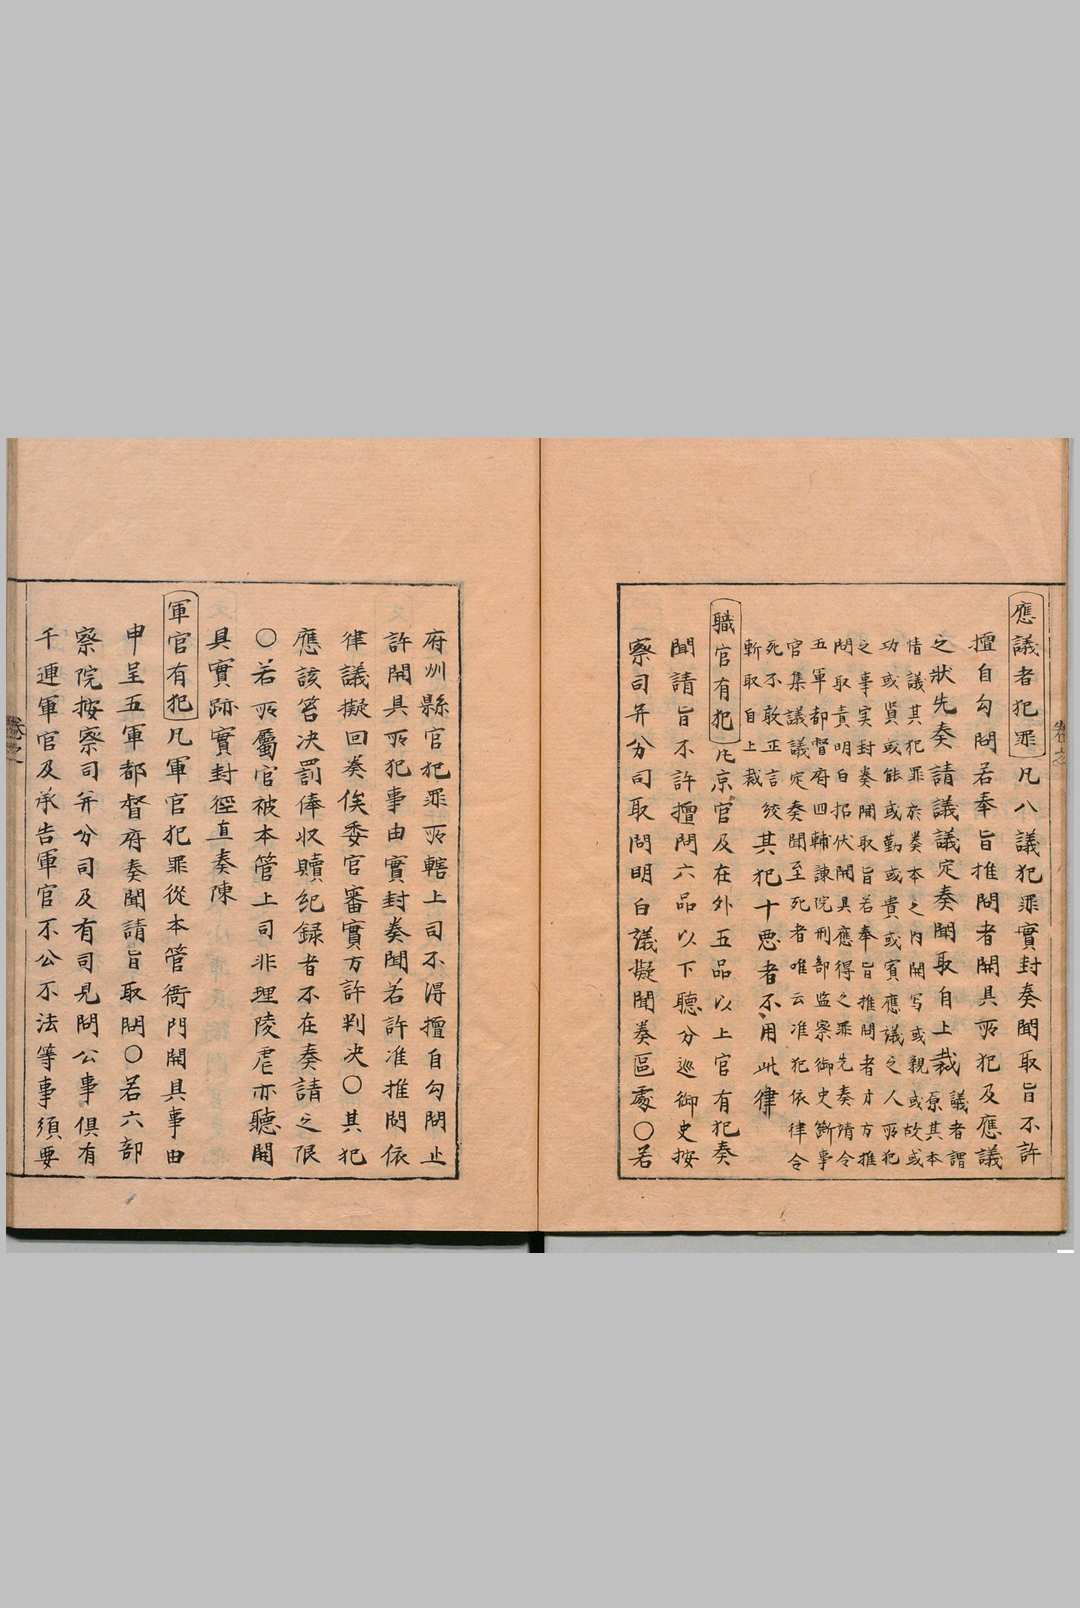 應議者犯罪凡八議犯罪實封奏聞取旨不許
擅自勾問若奉旨推問者開具所犯及應議
之狀先奏請議議定奏聞取自上裁議者謂
原其本
情議其犯罪於奏本之内開写或親或故或
功或賢或能或勤或貴或賓應議之人所犯
之事实封奏聞取旨若奉旨推問者才方推
問取責明白招伏開具應得之罪先奏請令
五軍都督府四輔諫院刑部监察御史斷事
官集議議定奏聞至死者唯云准犯依律令
死不敢正言絞
斬取自上裁
其犯十悪者不用此律
職官有犯凡京官及在外五品以上官有犯奏
聞請旨不許擅問六品以下聽分巡御史按
察司并分司取問明白議擬聞奏區處〇若
府州縣官犯罪所轄上司不得擅自勾問止
許開具所犯事由實封奏聞若許准推問依
律議擬回奏俟委官審實方許判决〇其犯
應該笞决罰俸收贖紀録者不在奏請之限
〇若所屬官被本管上司非理陵虐亦聽開
具實跡實封徑直奏陳
軍官有犯凡軍官犯罪從本管衙門開具事由
申呈五軍都督府奏聞請旨取問〇若六部
察院按察司并分司及有司見問公事俱有
千連軍官及承告軍官不公不法等事須要